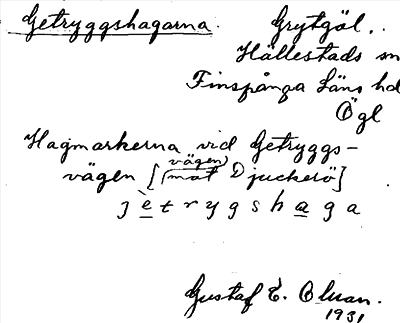 Getryggshagarna. Grytgöl,.
Hällestads sn
Finspånga läns hd
Ögl
Hagmarkerna vid Getryggs-
vägen [(vägen) mot Djuckerö]
jètrygshaga
Gustaf E.
1931